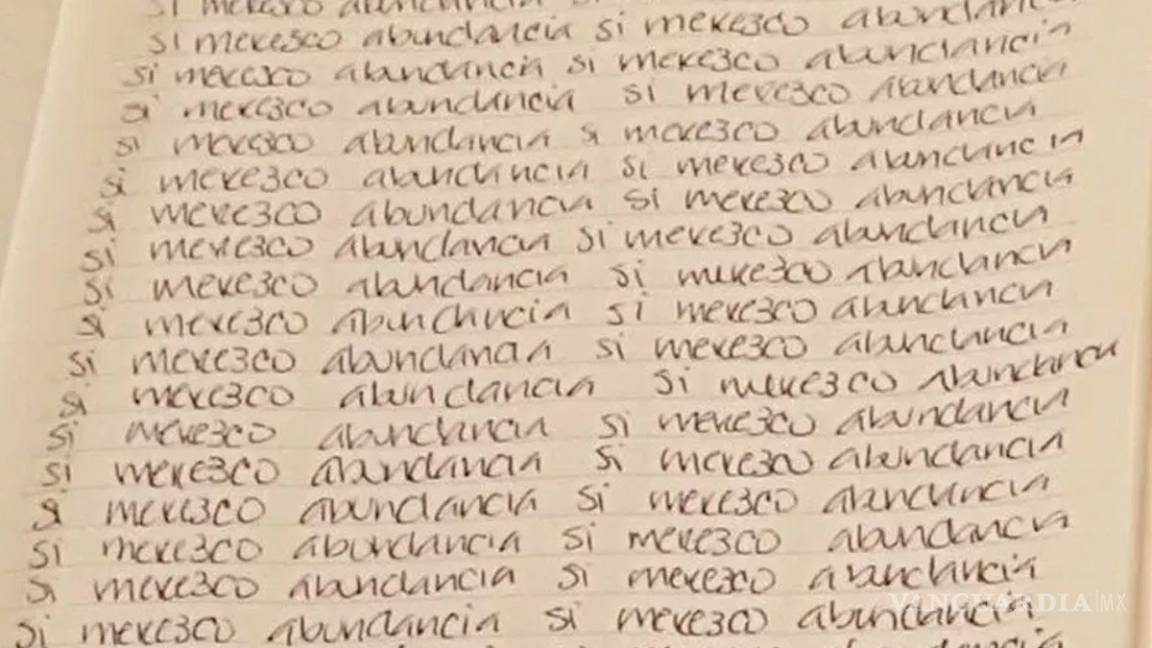 si merezco abundancia
si meresco abundancia si merezco abundancia
si merezco abundancia si merezco abundancia
si merezco abundancia si merezco abundancia
si merezco abundancia si merezco abundancia
si merezco abundancia si merezco abundancia
si merezco abundancia si merezco abundancia
si merezco abundancia si merezco abundancia
si merezco abundancia si merezco abundancia
si merezco abundancia si merezco abundancia
si merezco abundancia si merezco abundancia
si merezco abundancia si merezco abundancia
si merezco abundancia si merezco abundancia
si merezco abundancia si merezco abundancia
si merezco abundancia si merezco abundancia
si merezco abundancia si merezco abundancia
si merezco abundancia si merezco abundancia
si merezco abundancia si merezco abundancia
VANGUARDIA|MX